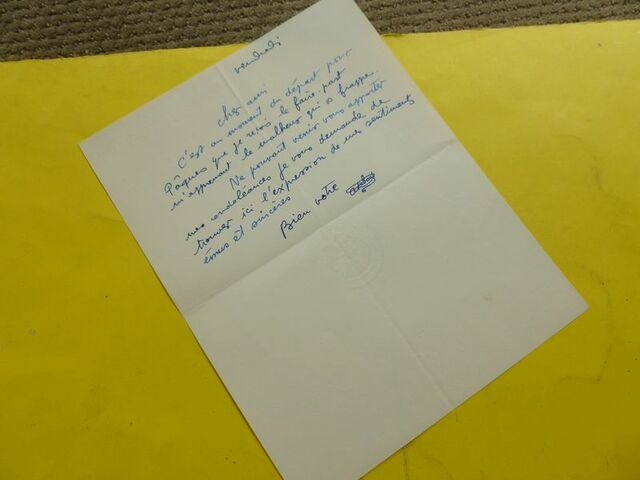 vendredi
Cher ami
C'est au moment du départ pour
Pâques que je reçois le faire-part
m'apprenant le malheur qui vs frappe.
Ne pouvant venir vous apporter
mes condoléances je vous demande de
trouver ici l'expression de mes sentiments
émus et sincères
Bien votre